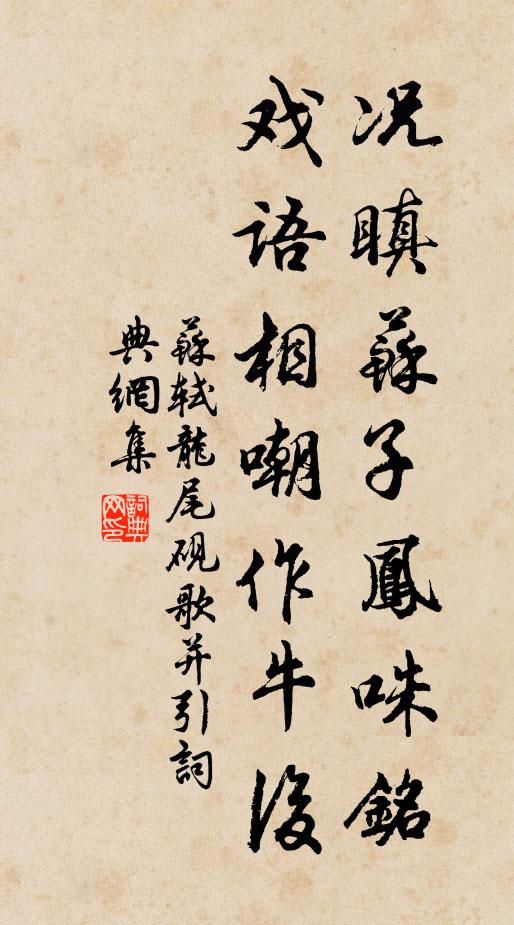 况瞋蘇子鳳咮銘
戏語相嘲作牛後
蘇軾龍尾硯歌并引詞
典網集
詞典
网印